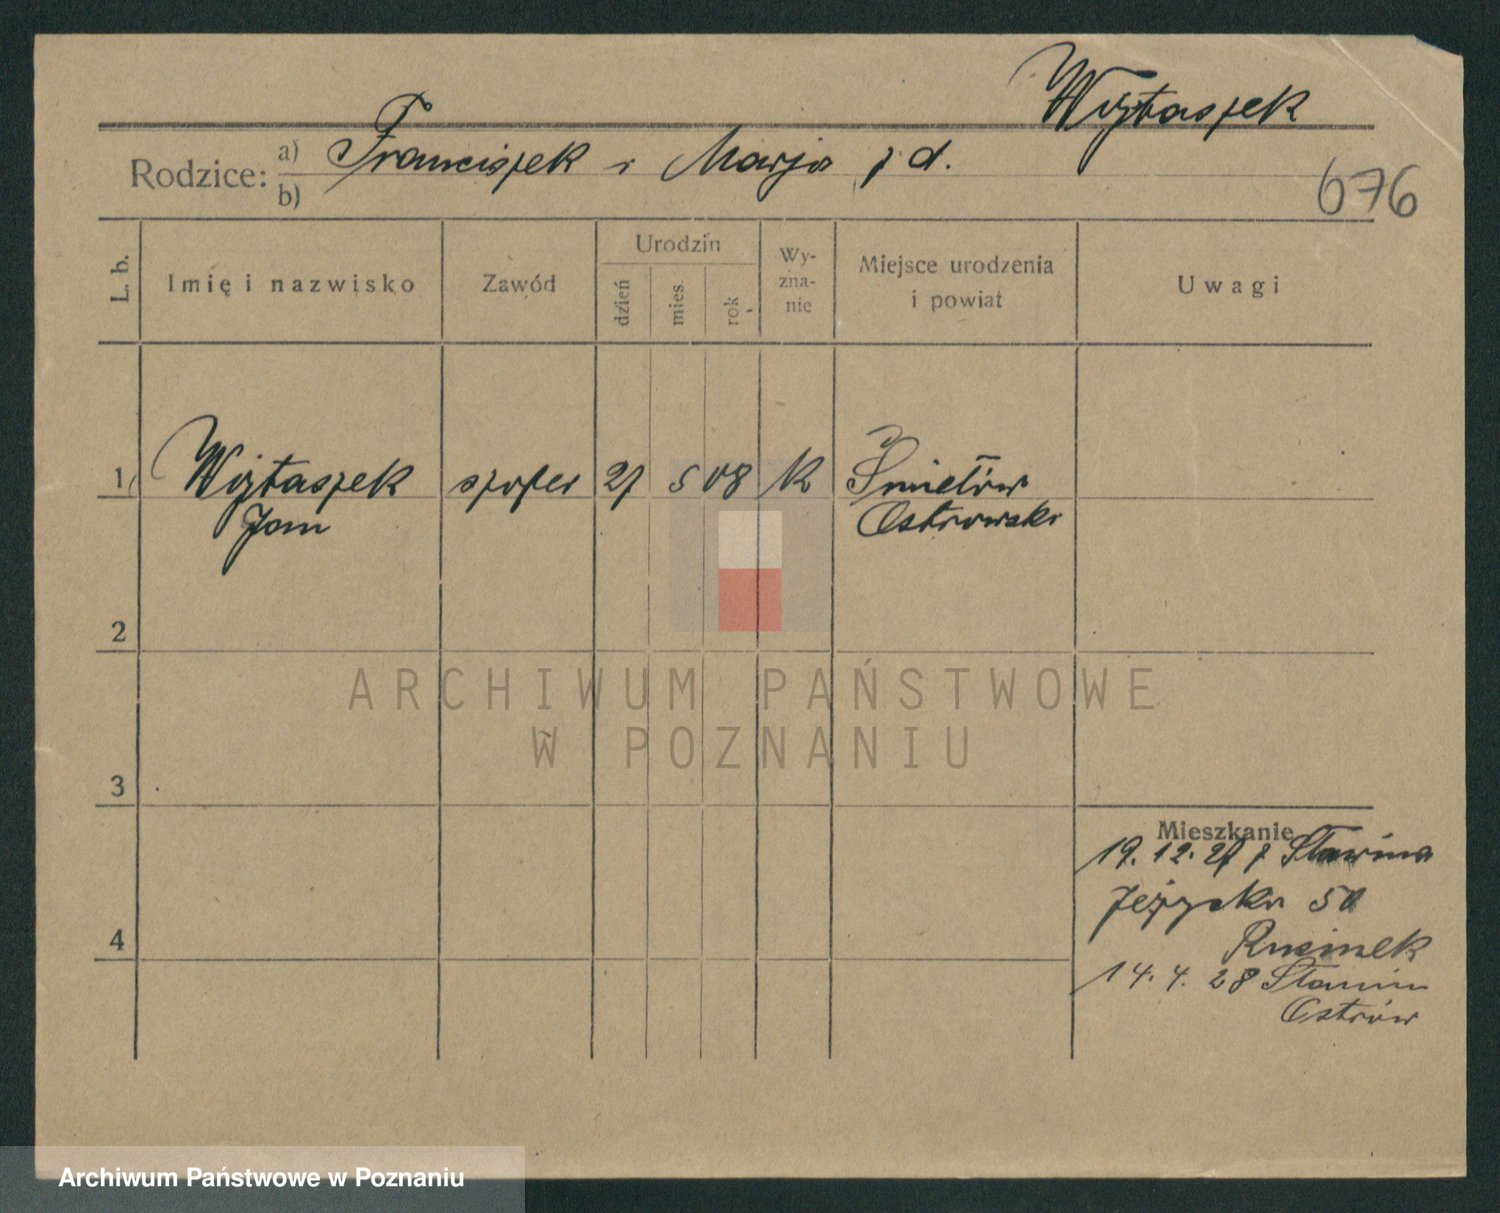 Wojtaszek
Rodzice: a) Franciszek i Marja z d.
b)
676
L. b.
Imię i nazwisko
Zawód
Urodzin
dzień
mies.
rok
Wy-
zna-
nie
Miejsce urodzenia
i powiat
Uwagi
1 Wojtaszek szofer 27 5 08 K
Jan Ostrowski
2
ARCHIWUM PAŃSTWOWE
W POZNANIU
3
Mieszkanie
19. 12. 27 z
Jeżycka 50
4
Rusinek
14. 4. 28
Ostrów
Archiwum Państwowe w Poznaniu